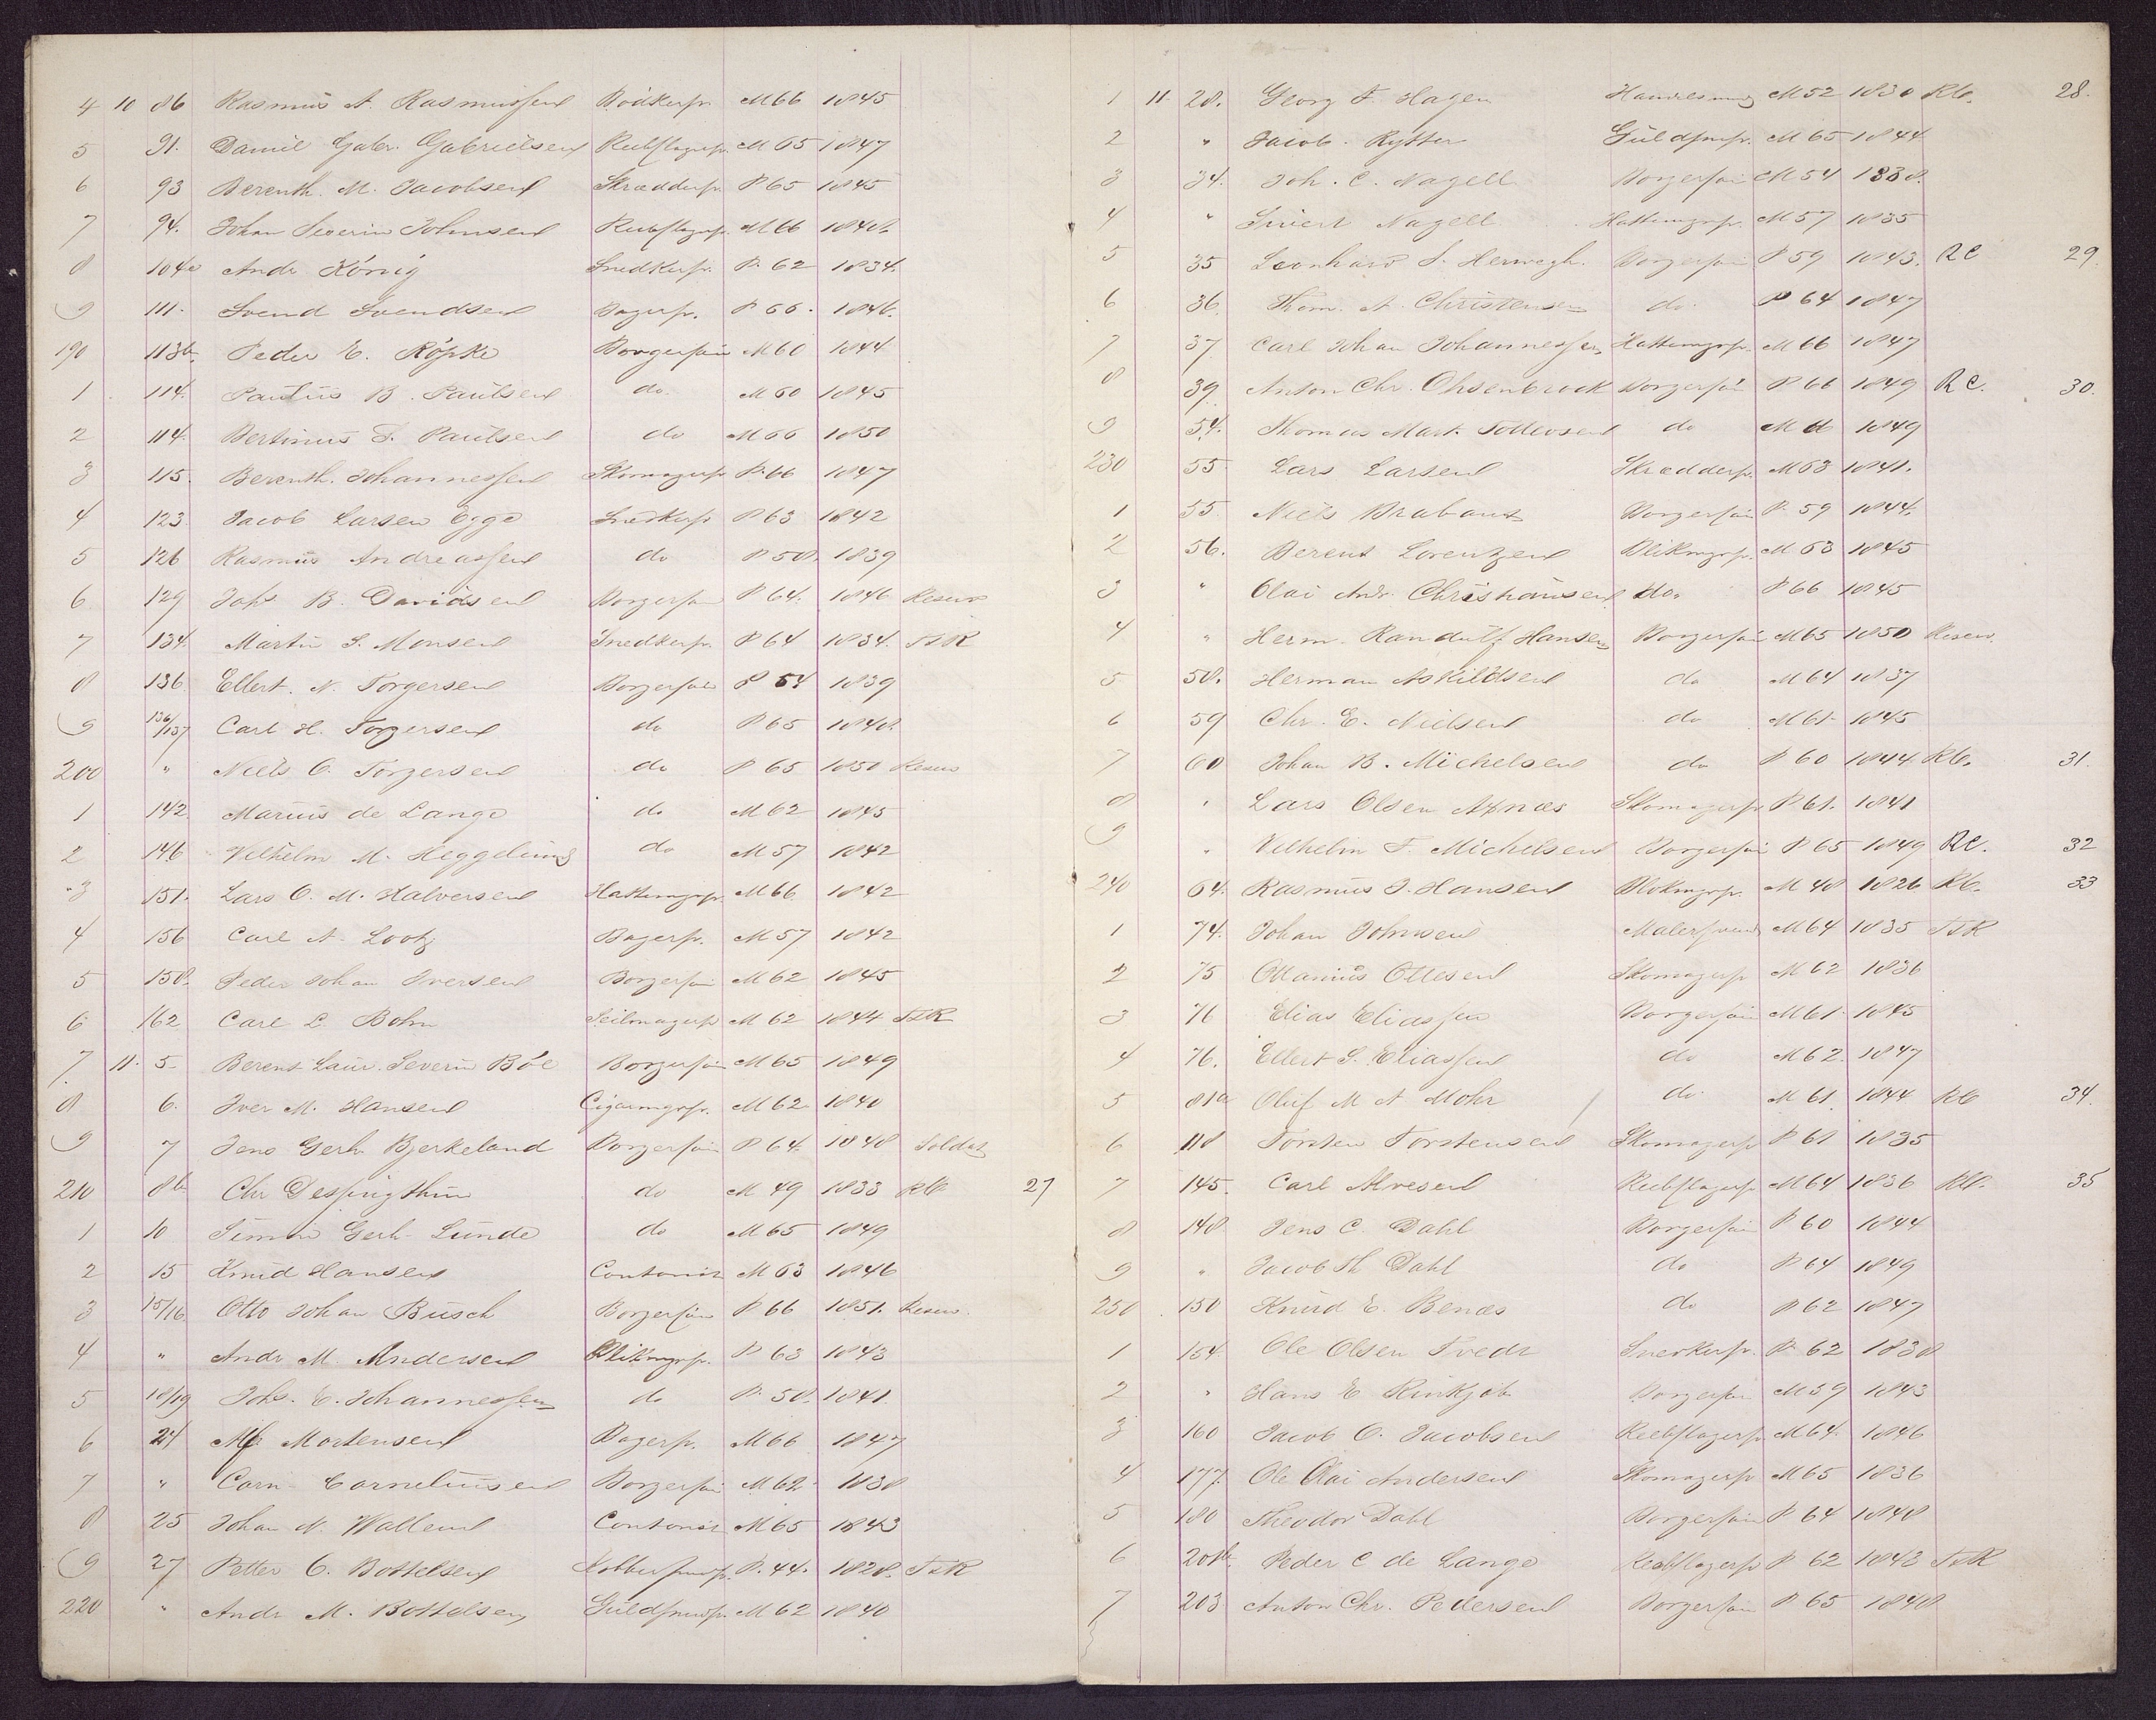 4 10 86 Rasmus A. Rasmussen Bödkersv. M 66 1845
5 91. Daniel Gabr. Gabrielsen Rebslagersv. M 65 1847
6 93 Berenth. M. Jacobsen Skræddersv. P 65 1845
7 94. Johan Severin Johnsen Rebslagersv. M 66 1848.
8 104 Andr König Snedkersv. P. 62 1834.
9 111. Svend Svendsen Bagersv. P 66. 1846.
190 113b. Peder E. Röpke Borgersøn M 60 1844
1 114. Paulus B. Paulsen do. M 60 1845
2 114. Bertinus S. Paulsen do M 66 1850
3 115. Berenth. Johannessen Skomagersv P. 66 1847
4 123 Jacob Larsen Egge Snedkersv P 63 1842
5 126 Rasmus Andreassen do P 58. 1839
6 129 Johs B. Davidsen Borgersøn P 64. 1846. Reserv
7 134. Martin S. Monsen Snedkersv. P 64 1834. FsK
8 136 Ellert. N. Torgersen Borgersøn P 54 1839
9 136/137 Carl H. Torgersen do P 65 1848.
200 " Niels C. Torgersen do P 65 1850 Reserv
1 142 Marius de Lange do M 62 1845
2 146 Velhelm M. Heggelund do M 57 1842
3 151. Lars O. M. Halversen Hattemgrsv. M 66 1842
4 156 Carl A. Lootz Bagersv. M 57 1842
5 158. Peder Johan Iversen Borgersøn M 62 1845
6 162 Carl L. Bohn Seilmagersv M 62 1844 FsK
7 11. 5 Berent Laur. Severin Böe Borgersøn M 65 1849
8 6. Iver M. Hansen Cigarmgrsv. M 62 1840
9 7 Jens Gerh. Bjerkeland Borgersøn P 64. 1848 Soldat
210 8b Chr Desingthun do M 49 1833 RC 27
1 10 Simon Gerh. Lunde do M 65 1849
2 15 Knud Hansen Contorist M 63 1846
3 15/16. Otto Johan Busch Borgersøn P 66 1851. Reserv.
4 " Andr M. Andersen Blikmgrsv. P 63 1843
5 18/19 Johs. E. Johannessen do P. 58. 1841.
6 24 Alf Mortensen Bagersv. M 66 1847
7 " Corn Corneliussen Borgersøn M 62. 1838
8 25 Johan N. Wallem Contorist M 65 1843
9 27 Petter C. Bottelsen Kobbersmedsv. P. 44. 1828. FsK
220 " Andr M. Bottelsen Guldsmedsv M 62 1840
1 11. 28. Georg F. Hagen Handelsmd M 52 1830 RC. 28.
2 " Jacob. Rytter Guldsmsv. M 65 1844
3 34. Joh. C. Nagell Borgersøn M 54 1838.
4 " Sivert Nagell Hattemgrsv. M 57 1835
5 35 Leonhard S. Herwegh. Borgersøn P 59 1843. RC 29.
6 36 Thom. A. Christensen do P 64 1847
7 37 Carl Johan Johannessen Hattemgrsv. M 66 1847
8 39. Anton Chr. Ohsenbrock Borgersøn P 66 1849 RC. 30.
9 54. Thomas Mart. Tollevsen do M 1849
230 55 Lars Larsen Skræddersv. M 63 1841.
1 55 Niels Brabant Borgersøn P. 59 1844.
2 56. Berent Lorentzen Blikmgrsv. M 63 1845
3 " Olai Andr. Christiansen do. P 66 1845
4 " Herm. Randulf Hansen Borgersøn M 65 1850 Reserv.
5 58. Herman Askildsen do M 64 1837
6 59 Chr. E. Nielsen do M 61. 1845
7 60 Johan B. Michelsen do P 60 1844 RC. 31.
8 " Lars Olsen Axnæs Skomagersv P 61. 1841
9 " Velhelm F. Michelsen Borgersøn P 65 1849 RC. 32
240 64. Rasmus J. Hansen Blokmgrsv. M 48 1826 RC. 33
1 74. Johan Johnsen Malersvend M 64 1835 FsK
2 75 Ottanius Ottesen Skomagersv M 62 1836
3 76 Elias Eliassen Borgersøn M 61. 1845
4 76. Ellert S. Eliassen do M 62 1847
5 81a Oluf M A Mohr do. M 61 1844 RC 34.
6 118 Torsten Torstensen Skomagersv P 61 1835
7 145. Carl Alvesen Rebslagersv M 64 1836 RC. 35
8 148 Jens C. Dahl Borgersøn P 60 1844
9 " Jacob Th Dahl do P 64 1849
250 150 Knud E. Benæs do P 62 1847
1 154 Ole Olsen Tvedt Snedkersv. P. 62 1838
2 " Hans E Rinkjøb Borgersøn M 59 1843
3 160 Jacob O. Jacobsen Rebslagersv M 64. 1846
4 177. Ole Olai Andersen Skomagersv M 65 1836
5 180 Theodor Dahl Borgersøn P 64 1848
6 201b. Peder C de Lange Rebslagersv P 62 1843 FsK
7 203 Anton Chr. Pedersen Borgersøn P. 65 1848